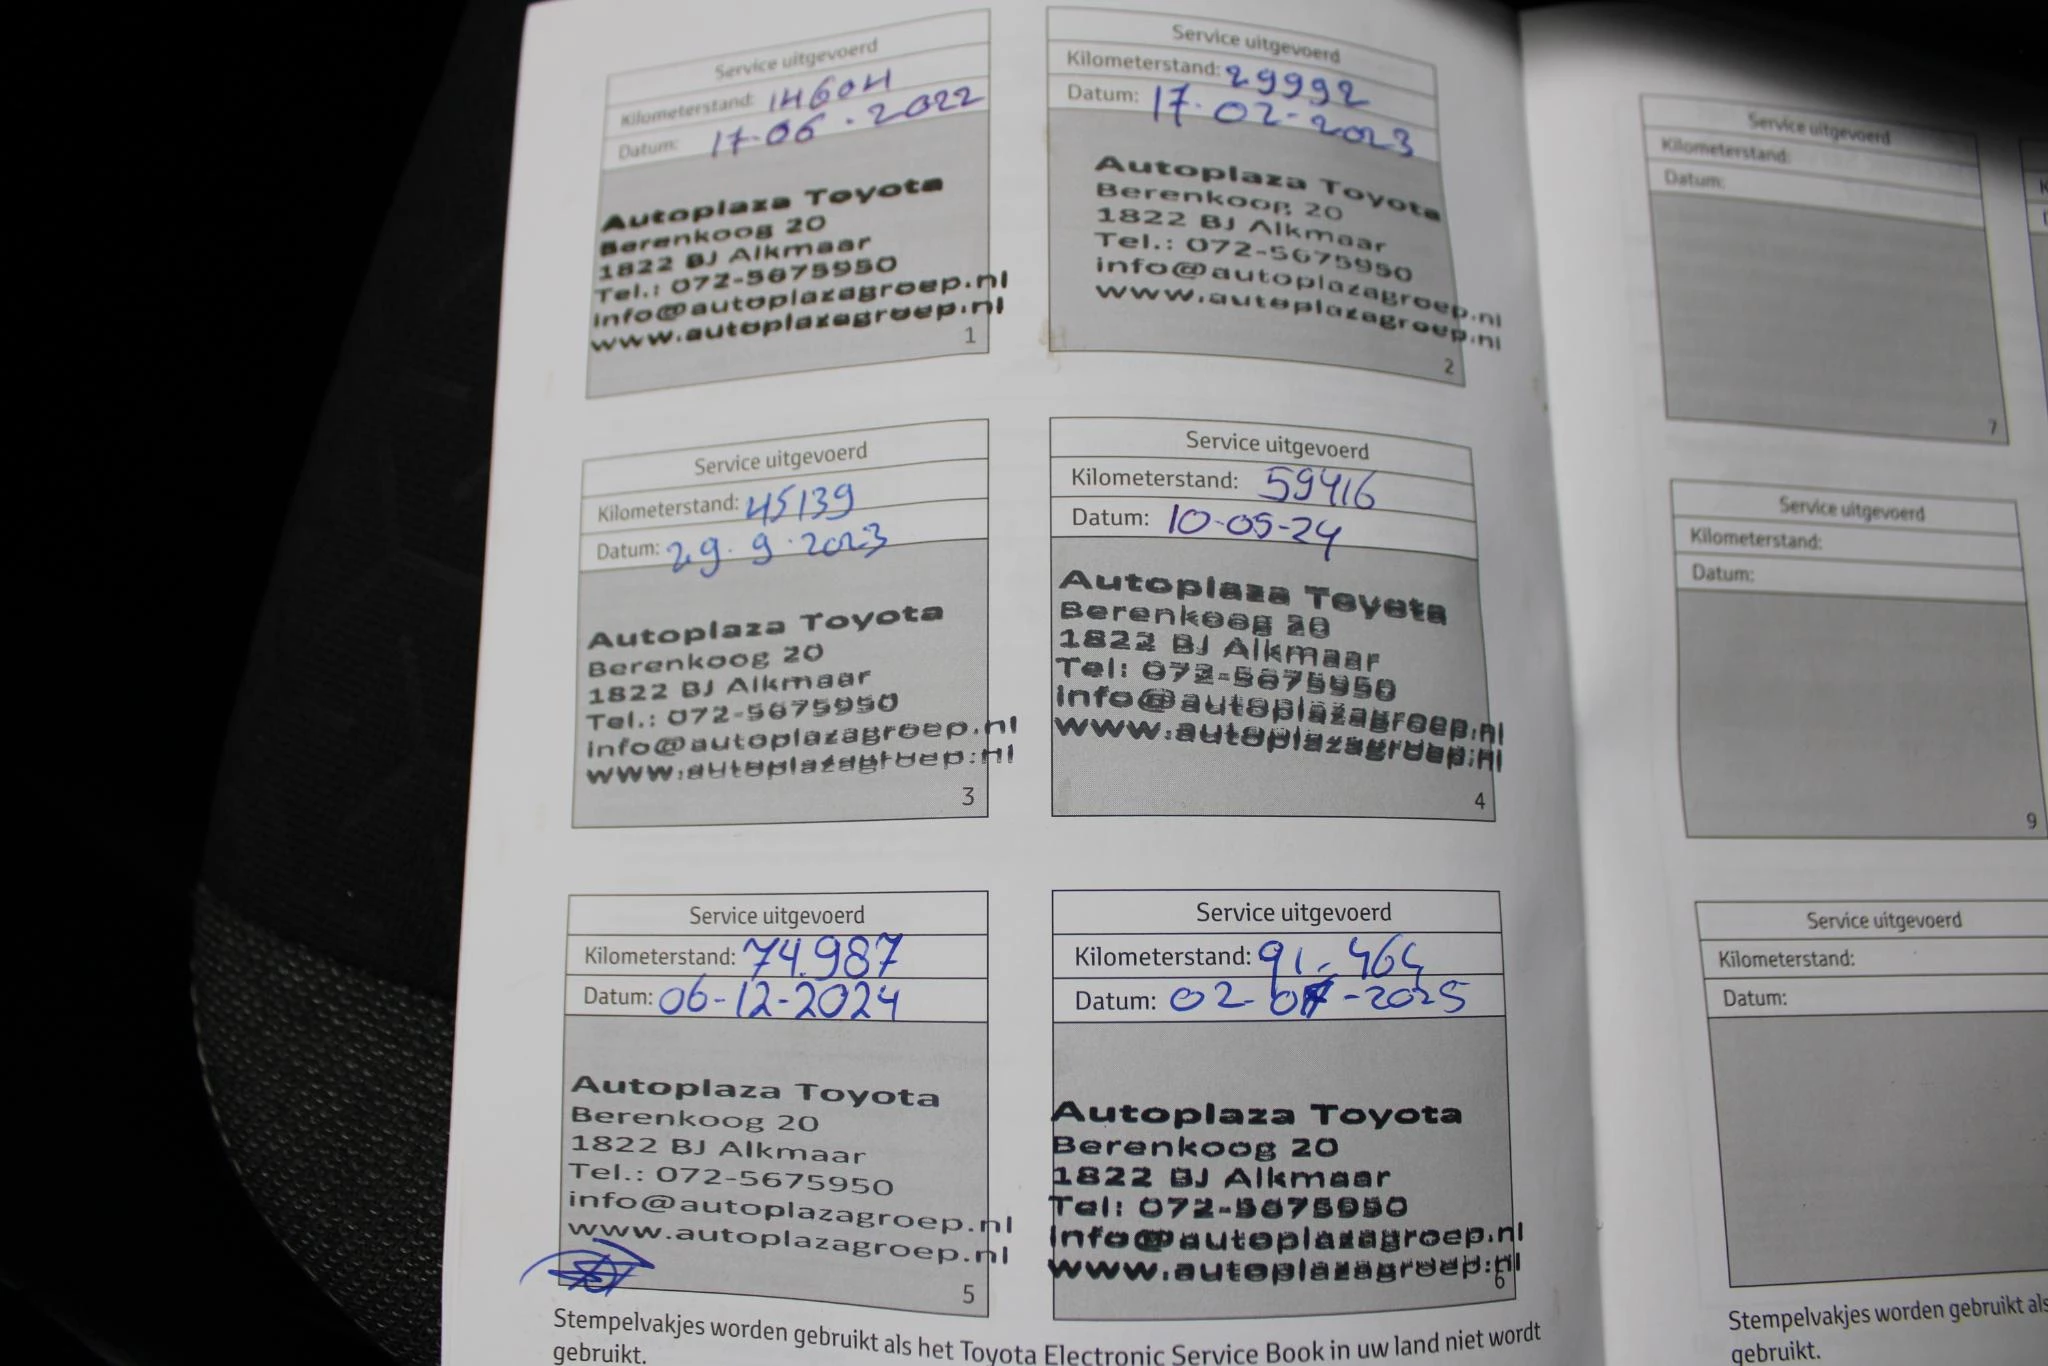 Service uitgevoerd
Kilometerstand: 14604
Datum: 17-06-2022
Autoplaza Toyota
Berenkoog 20
1822 BJ Alkmaar
Tel.: 072-5675950
info@autoplazagroep.nl
www.autoplazagroep.nl
1
Service uitgevoerd
Kilometerstand: 29992
Datum: 17-02-2023
Autoplaza Toyota
Berenkoog 20
1822 BJ Alkmaar
Tel.: 072-5675950
info@autoplazagroep.nl
www.autoplazagroep.nl
2
Service uitgevoerd
Kilometerstand: 45139
Datum: 29.9.2023
Autoplaza Toyota
Berenkoog 20
1822 BJ Alkmaar
Tel.: 072-5675950
info@autoplazagroep.nl
www.autoplazagroep.nl
3
Service uitgevoerd
Kilometerstand: 59416
Datum: 10-05-24
Autoplaza Toyota
Berenkoog 20
1822 BJ Alkmaar
Tel: 072-5675950
info@autoplazagroep.nl
www.autoplazagroep.nl
4
Service uitgevoerd
Kilometerstand: 74.987
Datum: 06-12-2024
Autoplaza Toyota
Berenkoog 20
1822 BJ Alkmaar
Tel.: 072-5675950
info@autoplazagroep.nl
www.autoplazagroep.nl
5
Service uitgevoerd
Kilometerstand: 91.464
Datum: 02-07-2025
Autoplaza Toyota
Berenkoog 20
1822 BJ Alkmaar
Tel: 072-5675950
info@autoplazagroep.nl
www.autoplazagroep.nl
6
Stempelvakjes worden gebruikt als het Toyota Electronic Service Book in uw land niet wordt
gebruikt.
Service uitgevoerd
Kilometerstand:
Datum:
7
Service uitgevoerd
Kilometerstand:
Datum:
9
Service uitgevoerd
Kilometerstand:
Datum:
Stempelvakjes worden gebruikt als
gebruikt.